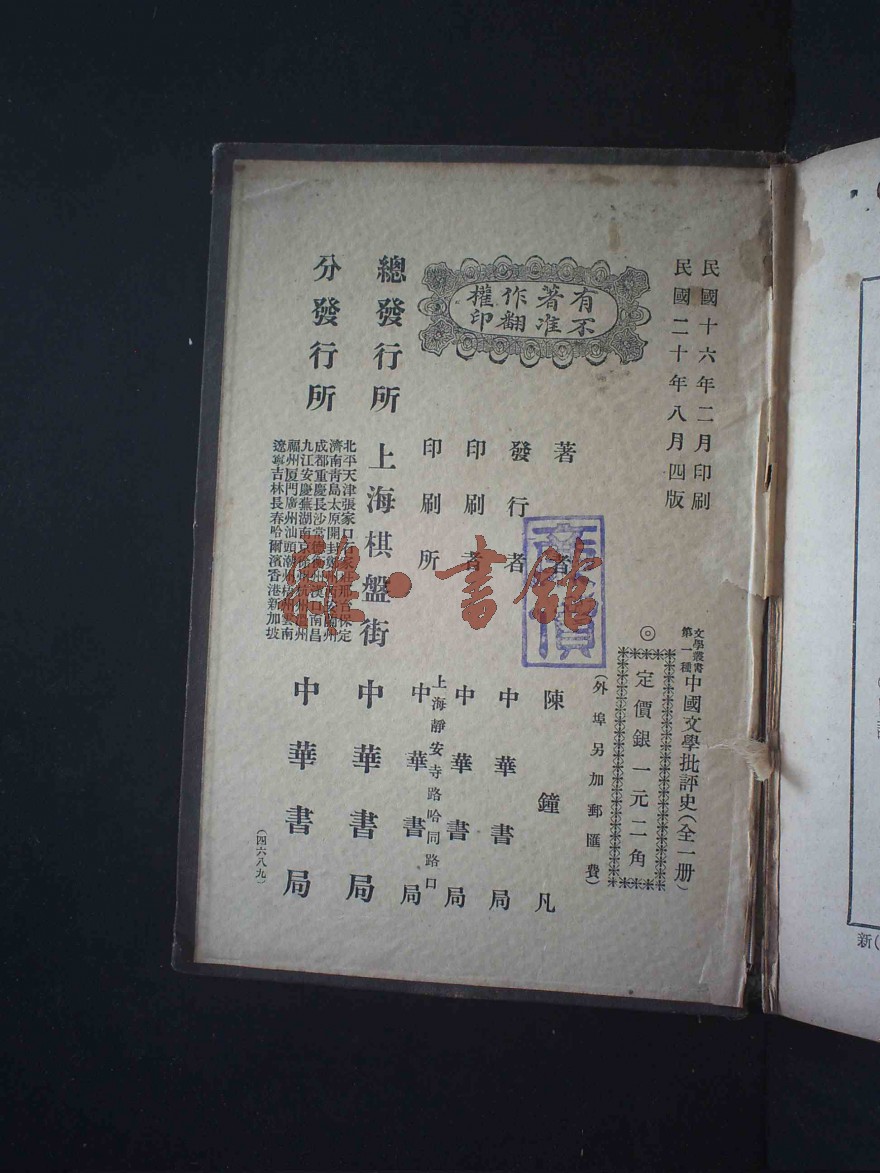 民國十六年二月印刷
民國二十年八月四版
文學叢書
第一種
中國文學批評史(全一册)
◎定價銀一元二角
(外埠另加郵匯費)
有著作權
不准翻印
著者 陳鐘凡
發行者 中華書局
印刷者 中華書局
上海靜安寺路哈同路口
印刷所 中華書局
總發行所 上海棋盤街 中華書局
分發行所
北平天津張家口
保定
濟南青島太原開封
蘭州
成都重慶長沙常
漢口南昌
九江安慶蕪湖南京
杭州
州
福州厦門廣州汕頭潮州
州雲南
遼寧吉林長春哈爾濱香港新加坡
中華書局
(四六八九)
雅·書館